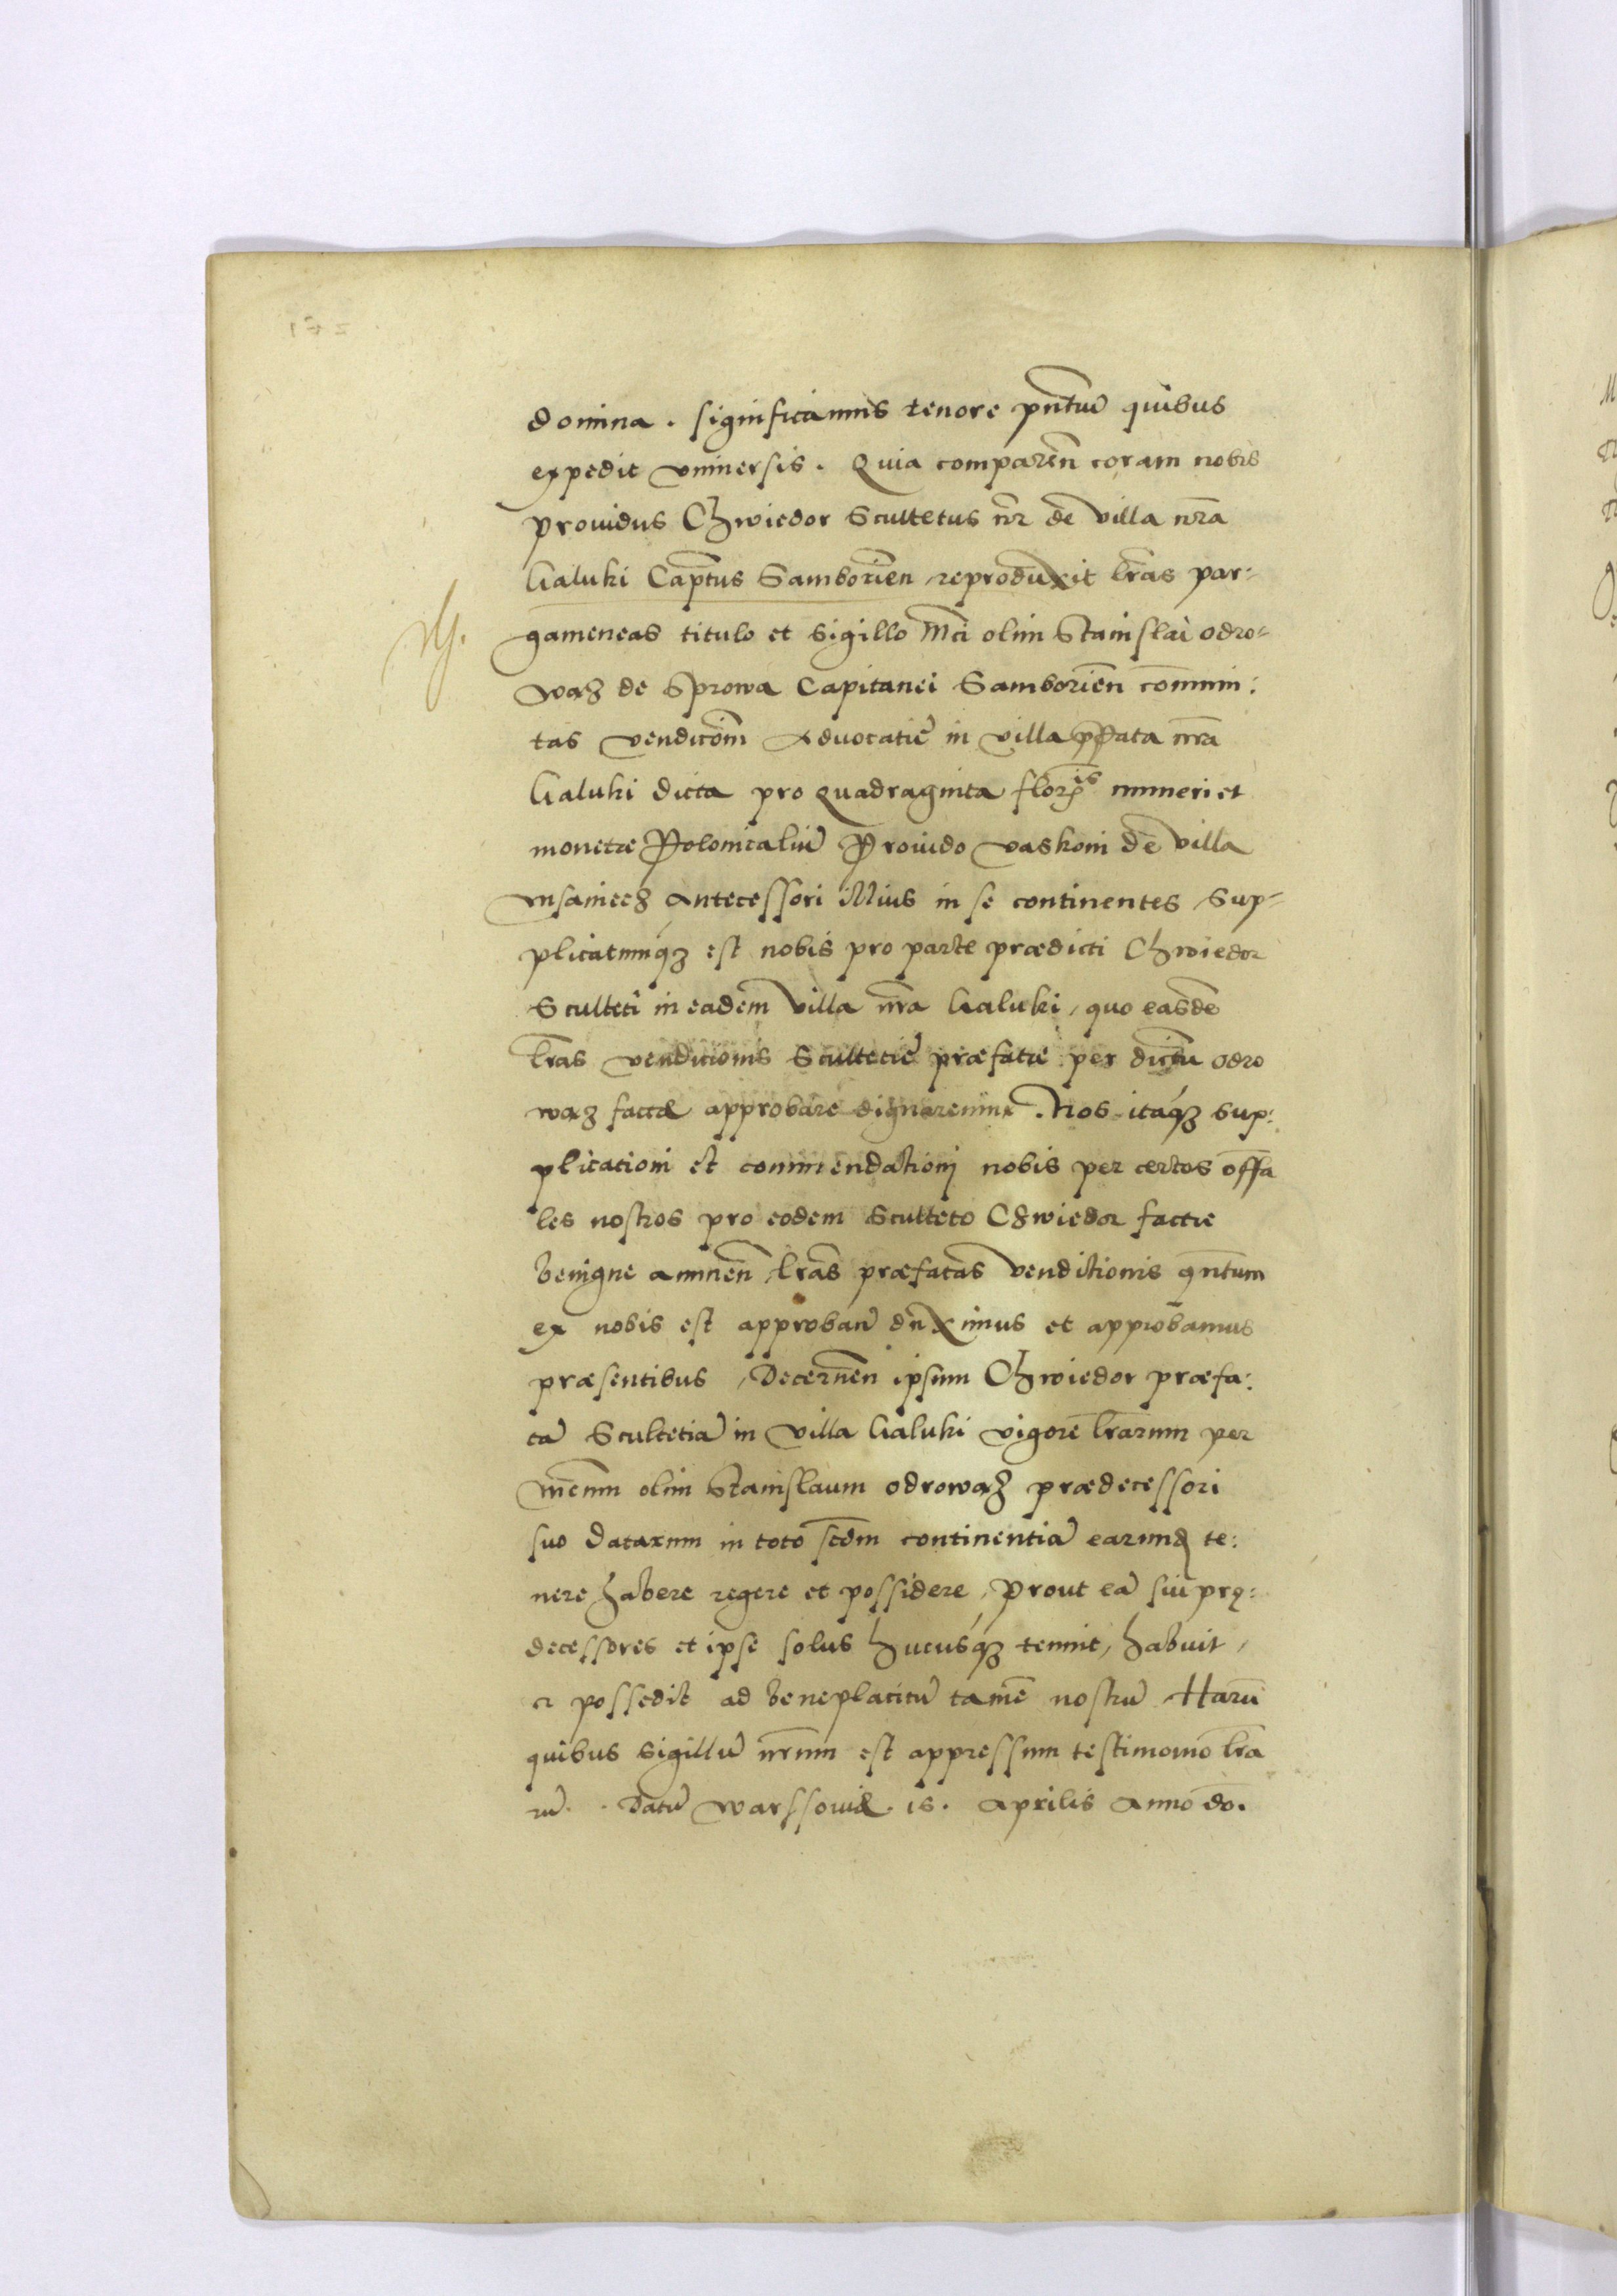 domina. significamus tenore pntiũ quibus
expedit vniuersis. Quia comparen̄ coram nobis
prouidus Chwiedor Scultetus nr̃ de villa nr̃a
Galuki Cap̃tus Samborien̄ reproduxit lr̃as par-
gameneas titulo et sigillo Mc̃i olim Stanislai Odro-
waz de Sprowa Capitanei Samborien̄ commũni:
tas vendicõm Aduocatiẽ in villa p̃data nr̃a
Galuki dicta pro quadraginta floris numeri et
monetæ Polonicaliũ Prouido Vaskoni de villa
antecessori illius in se continentes Sup-
plicatumqз est nobis pro parte prædicti Chwiedor
Sculteti in eadem villa nr̃a Galuki, quo easdẽ
lr̃as vendicionis Scultetiẽ præfatæ per dictũ Odro
waz factæ approbare dignaremur. Nos itaqз sup:
plicationi et commendationi nobis per certos offa
les nostros pro eodem Sculteto Chwiedor factæ
benigne annuen̄ lr̃as præfatas venditionis qñtum
ex nobis est approban̄ duximus et approbamus
præsentibus, Decernen̄ ipsum Chwiedor præfa:
tã Scultetiã in villa Galuki vigore lr̃arum per
olim Stanislaum Odrowaz prædecessori
suo datarum in toto scdm continentiã earund te:
nere habere regere et possidere, Prout eã sui prę:
decessores et ipse solus hucusqз tenuit, habuit,
et possedit ad beneplacitũ tamẽ nostrũ Harũ
quibus sigillũ nr̃um est appressum testimonio lr̃a
rũ. Datũ Warssouiæ. 15. Aprilis Anno dõ.